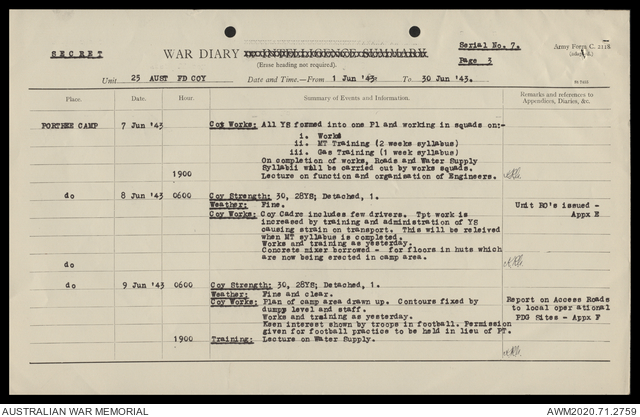 SECRET
WAR DIARY or INTELLIGENCE SUMMARY
(Erase heading not required).
Serial No. 7.
Page 3
Army Form C. 2118.
Unit 25 AUST FD COY Date and Time.—From 1 Jun '43. To 30 Jun '43.
Place. Date. Hour. Summary of Events and Information. Remarks and references to Appendices, Diaries, &c.
PORTHEE CAMP 7 Jun '43 Coy Works: All YS formed into one Pl and working in squads on:-
i. Works
ii. MT Training (2 weeks syllabus)
iii. Gas Training (1 week syllabus)
On completion of works, Roads and Water Supply
Syllabii will be carried out by works squads.
1900 Lecture on function and organisation of Engineers.
do 8 Jun '43 0600 Coy Strength: 30, 28YS; Detached, 1.
Weather: Fine.
Coy Works: Coy Cadre includes few drivers. Tpt work is
increased by training and administration of YS
causing strain on transport. This will be releived
when MT syllabus is completed.
Works and training as yesterday.
Concrete mixer borrowed - for floors in huts which
are now being erected in camp area.
Unit RO's issued -
Appx E
do
do 9 Jun '43 0600 Coy Strength: 30, 28YS; Detached, 1.
Weather: Fine and clear.
Coy Works: Plan of camp area drawn up. Contours fixed by
dumpy level and staff.
Works and training as yesterday.
Keen interest shown by troops in football. Permission
given for football practice to be held in lieu of PT.
1900 Training: Lecture on Water Supply.
Report on Access Roads
to local operational
PDG Sites - Appx F
AUSTRALIAN WAR MEMORIAL
AWM2020.71.2759